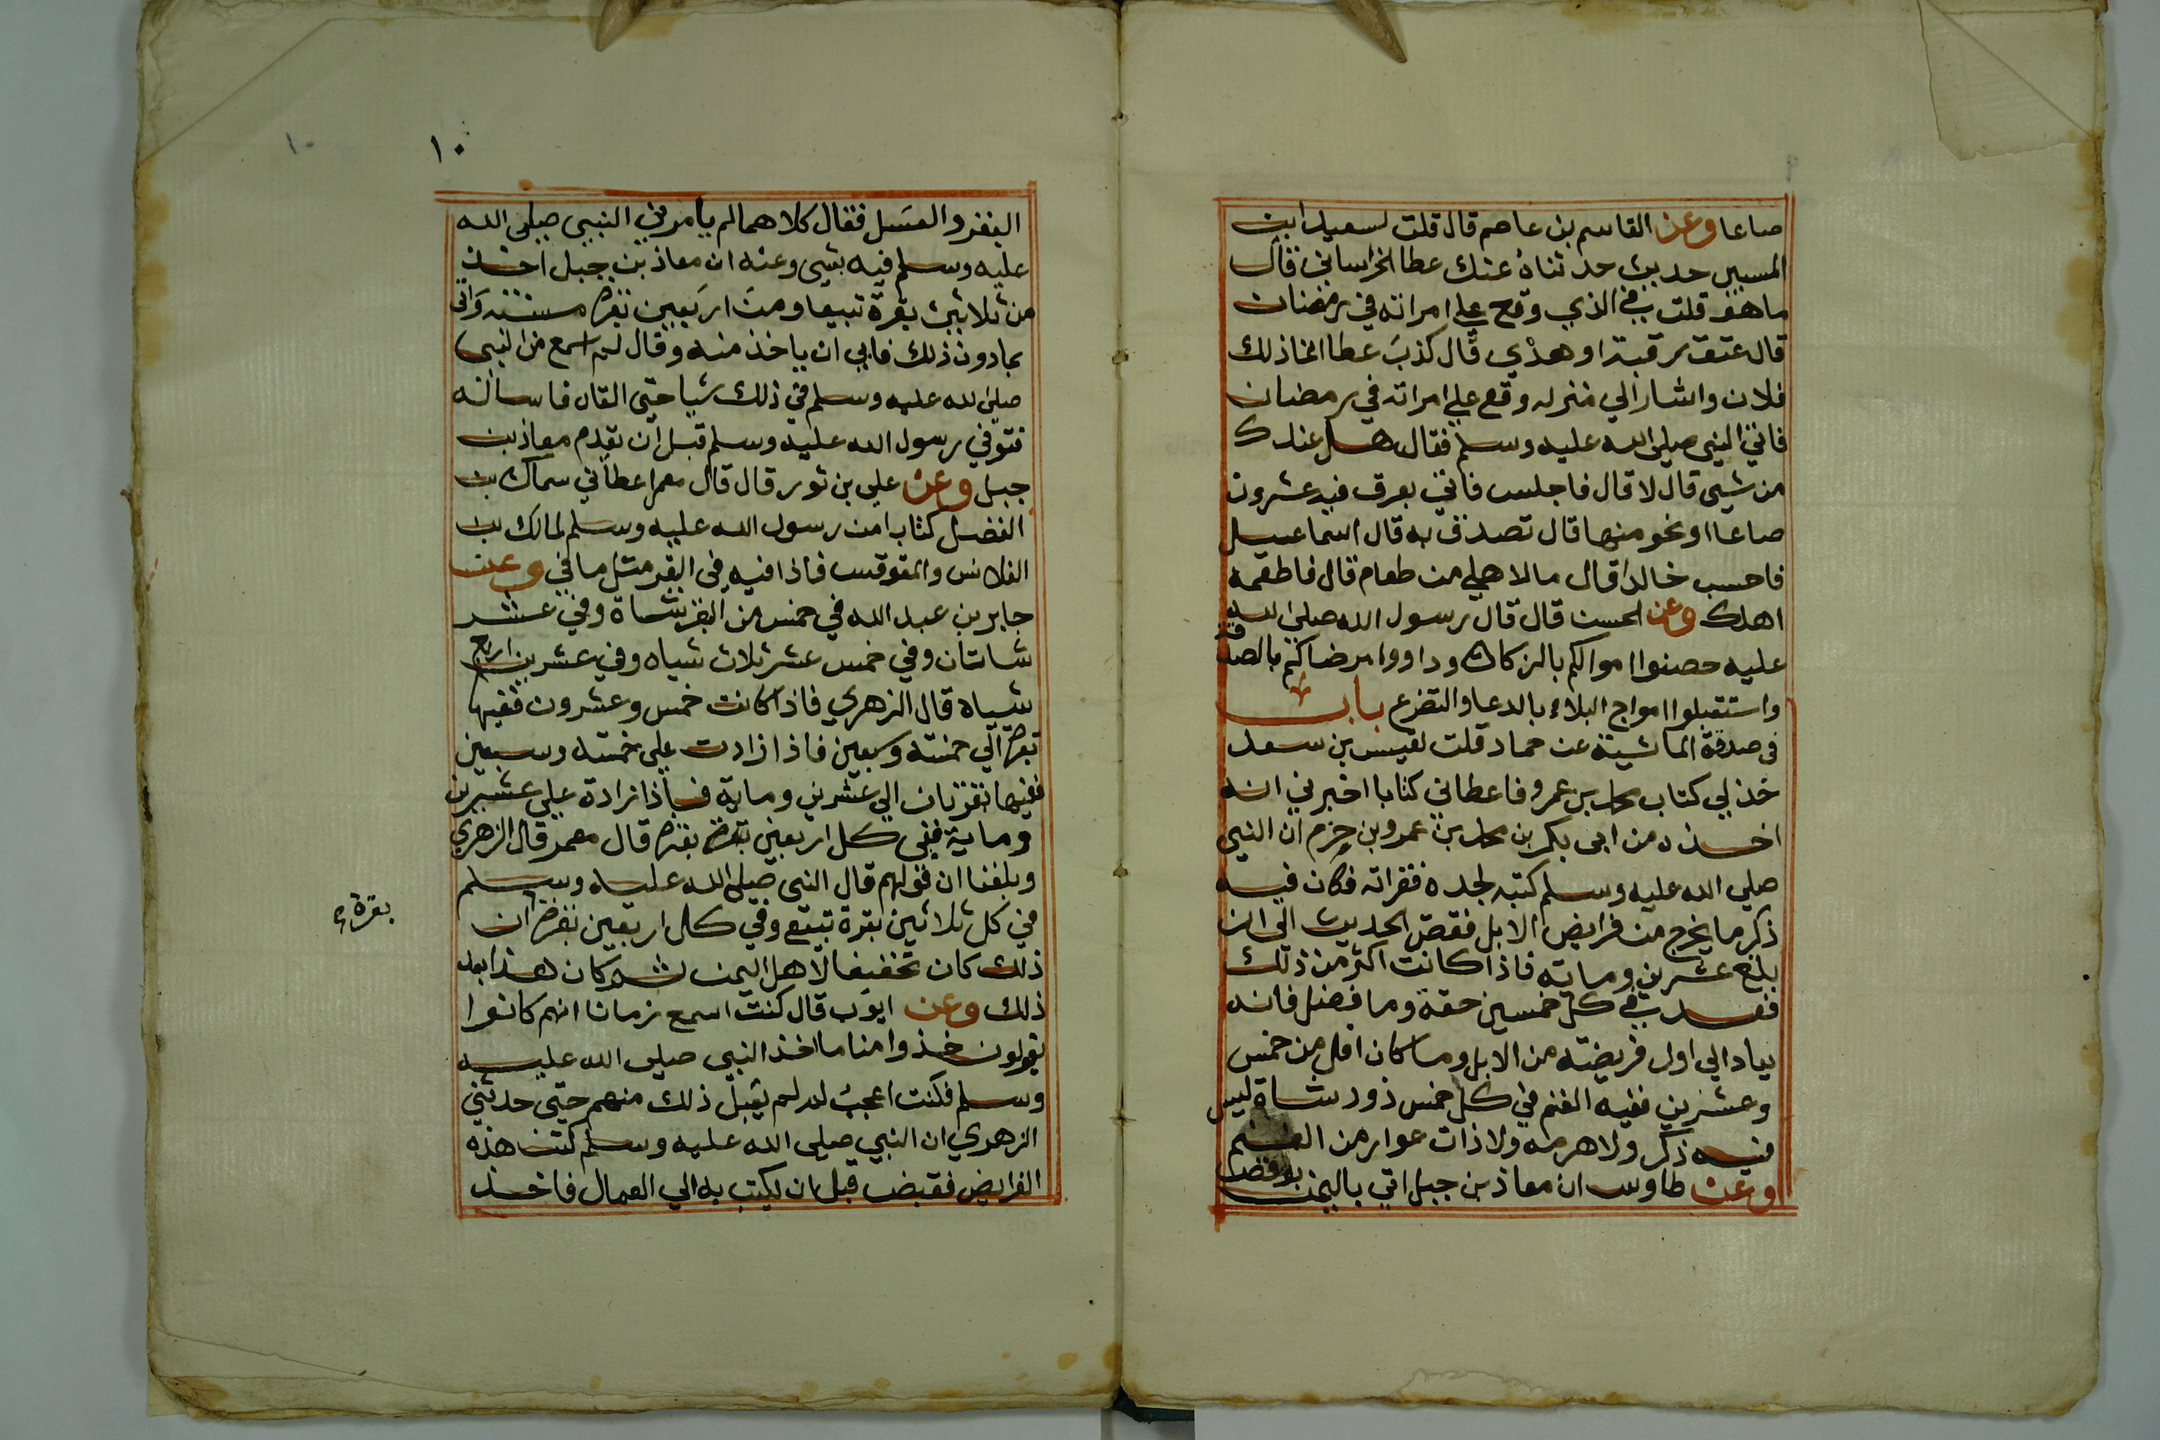 صاعا وعن القاسم بن عاصم قال قلت لسعيد ابن
المسيب حديث حدثناه عنك عطا الخراساني قال
ما هو قلت في الذي وقع علي امراته في رمضان
قال عتق رقبة او هدي قال كذب عطا انما ذلك
فلان واشار الي منزله وقع علي امراته في رمضان
فاتي النبي صلي الله عليه وسلم فقال هل عندك
من شيي قال لا قال فاجلس فاتي بعرق فيه عشرون
صاعا او نحو منها قال تصدق به قال اسماعيل
فاحسب خالدا قال مالاهلي من طعام قال فاطعمه
اهلك وعن الحسن قال قال رسول الله صلي الله
عليه حصنوا اموالكم بالزكاة وداووا مرضاكم بالصدقة
واستقبلوا امواج البلاء بالدعا والتضرع باب
في صدقة الماشية عن حماد قلت لقيس بن سعد
خذ لي كتاب محمد بن عمرو فاعطاني كتابا اخبرني انه
اخذه من ابي بكر بن محمد بن عمرو بن حزم ان النبي
صلي الله عليه وسلم كتبه لجده فقراته فكان فيه
ذكر ما يخرج من فرايض الابل فقص الحديث الي ان
بلغ عشرين وماية فاذا كانت اكثر من ذلك
فعد في كل خمسين حقة وما فضل فانه
يعاد الي اول فريضته من الابل وما كان اقل من خمس
وعشرين ففيه الغنم في كل خمس ذود شاة ليس
فيه ذكر ولا هرمه ولا ذات عوار من الغنم
وعن طاوس ان معاذ بن جبل اتي باليمن بوقص
١٠
البقر والعسل فقال كلاهما لم يامرني النبي صلي الله
عليه وسلم فيه بشي وعنه ان معاذ بن جبل اخذ
من ثلاثين بقرة تبيعا ومن اربعين بقرة مسنه واتي
بمادون ذلك فابي ان ياخذ منه وقال لم اسمع من النبي
صلي الله عليه وسلم في ذلك شيا حتي القاه فاساله
فتوفي رسول الله عليه وسلم قبل ان يقدم معاذ بن
جبل وعن علي بن ثور قال قال معمر اعطاني سماك بن
الفضل كتابا من رسول الله عليه وسلم لمالك بن
الفلانس والمقوقس فاذا فيه في البقر مثل ما في وعن
جابر بن عبد الله في خمس من البقر شاة وفي عشر
شاتان وفي خمس عشر ثلاث شياه وفي عشرين اربع
شياه قال الزهري فاذا كانت خمس وعشرون ففيها
بقرة الي خمسة وسبعين فاذا زادت علي خمسه وسبعين
ففيها بقرتان الي عشرين وماية فاذا زادة علي عشرين
وماية ففي كل اربعين بقرة بقرة قال معمر قال الزهري
وبلغنا ان قولهم قال النبي صلي الله عليه وسلم
في كل ثلاثين بقرة تبيع وفي كل اربعين بقرة ان
ذلك كان تخفيفا لاهل اليمن ثم كان هذا بعد
ذلك وعن ايوب قال كنت اسمع زمانا انهم كانوا
يقولون خذوا منا ما اخذ النبي صلي الله عليه
وسلم فكنت اعجب لم لم يقبل ذلك منهم حتي حدثني
الزهري ان النبي صلي الله عليه وسلم كتب هذه
الفرايض فقبض قبل ان يكتب به الي العمال فاخذ
بقرة